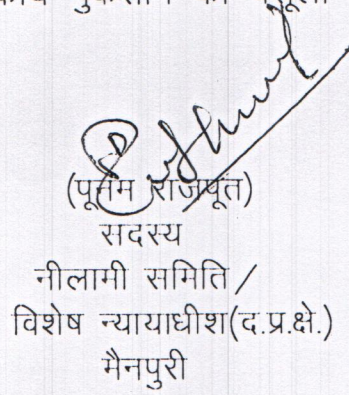 (पूनम राजपूत)
सदस्य
नीलामी समिति/
विशेष न्यायाधीश(द.प्र.क्षे.)
मैनपुरी